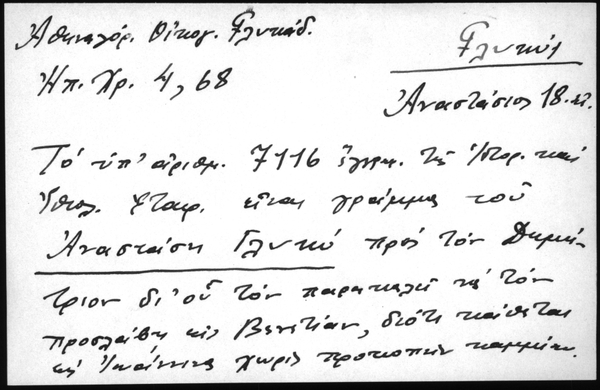 Ἀθηναγόρ. Οἰκογ. Γλυκάδ.
Γλυκύς
Ἠπ. Χρ. 4, 68
Ἀναστάσιος 18. αἰ.
Τό ὑπ' ἀριθμ. 7116 ἔγγρ. τῆς Ἱστορ. καί
Ἐθνολ. Ἑταιρ. εἶναι γράμμα τοῦ
Ἀναστάση Γλυκύ πρός τόν Δημή-
τριον δι' οὗ τόν παρακαλεῖ νά τόν
προσλάβῃ εἰς Βενετίαν, διότι κάθεται
εἰς Ἰωάννινα χωρίς προκοπήν καμμίαν.